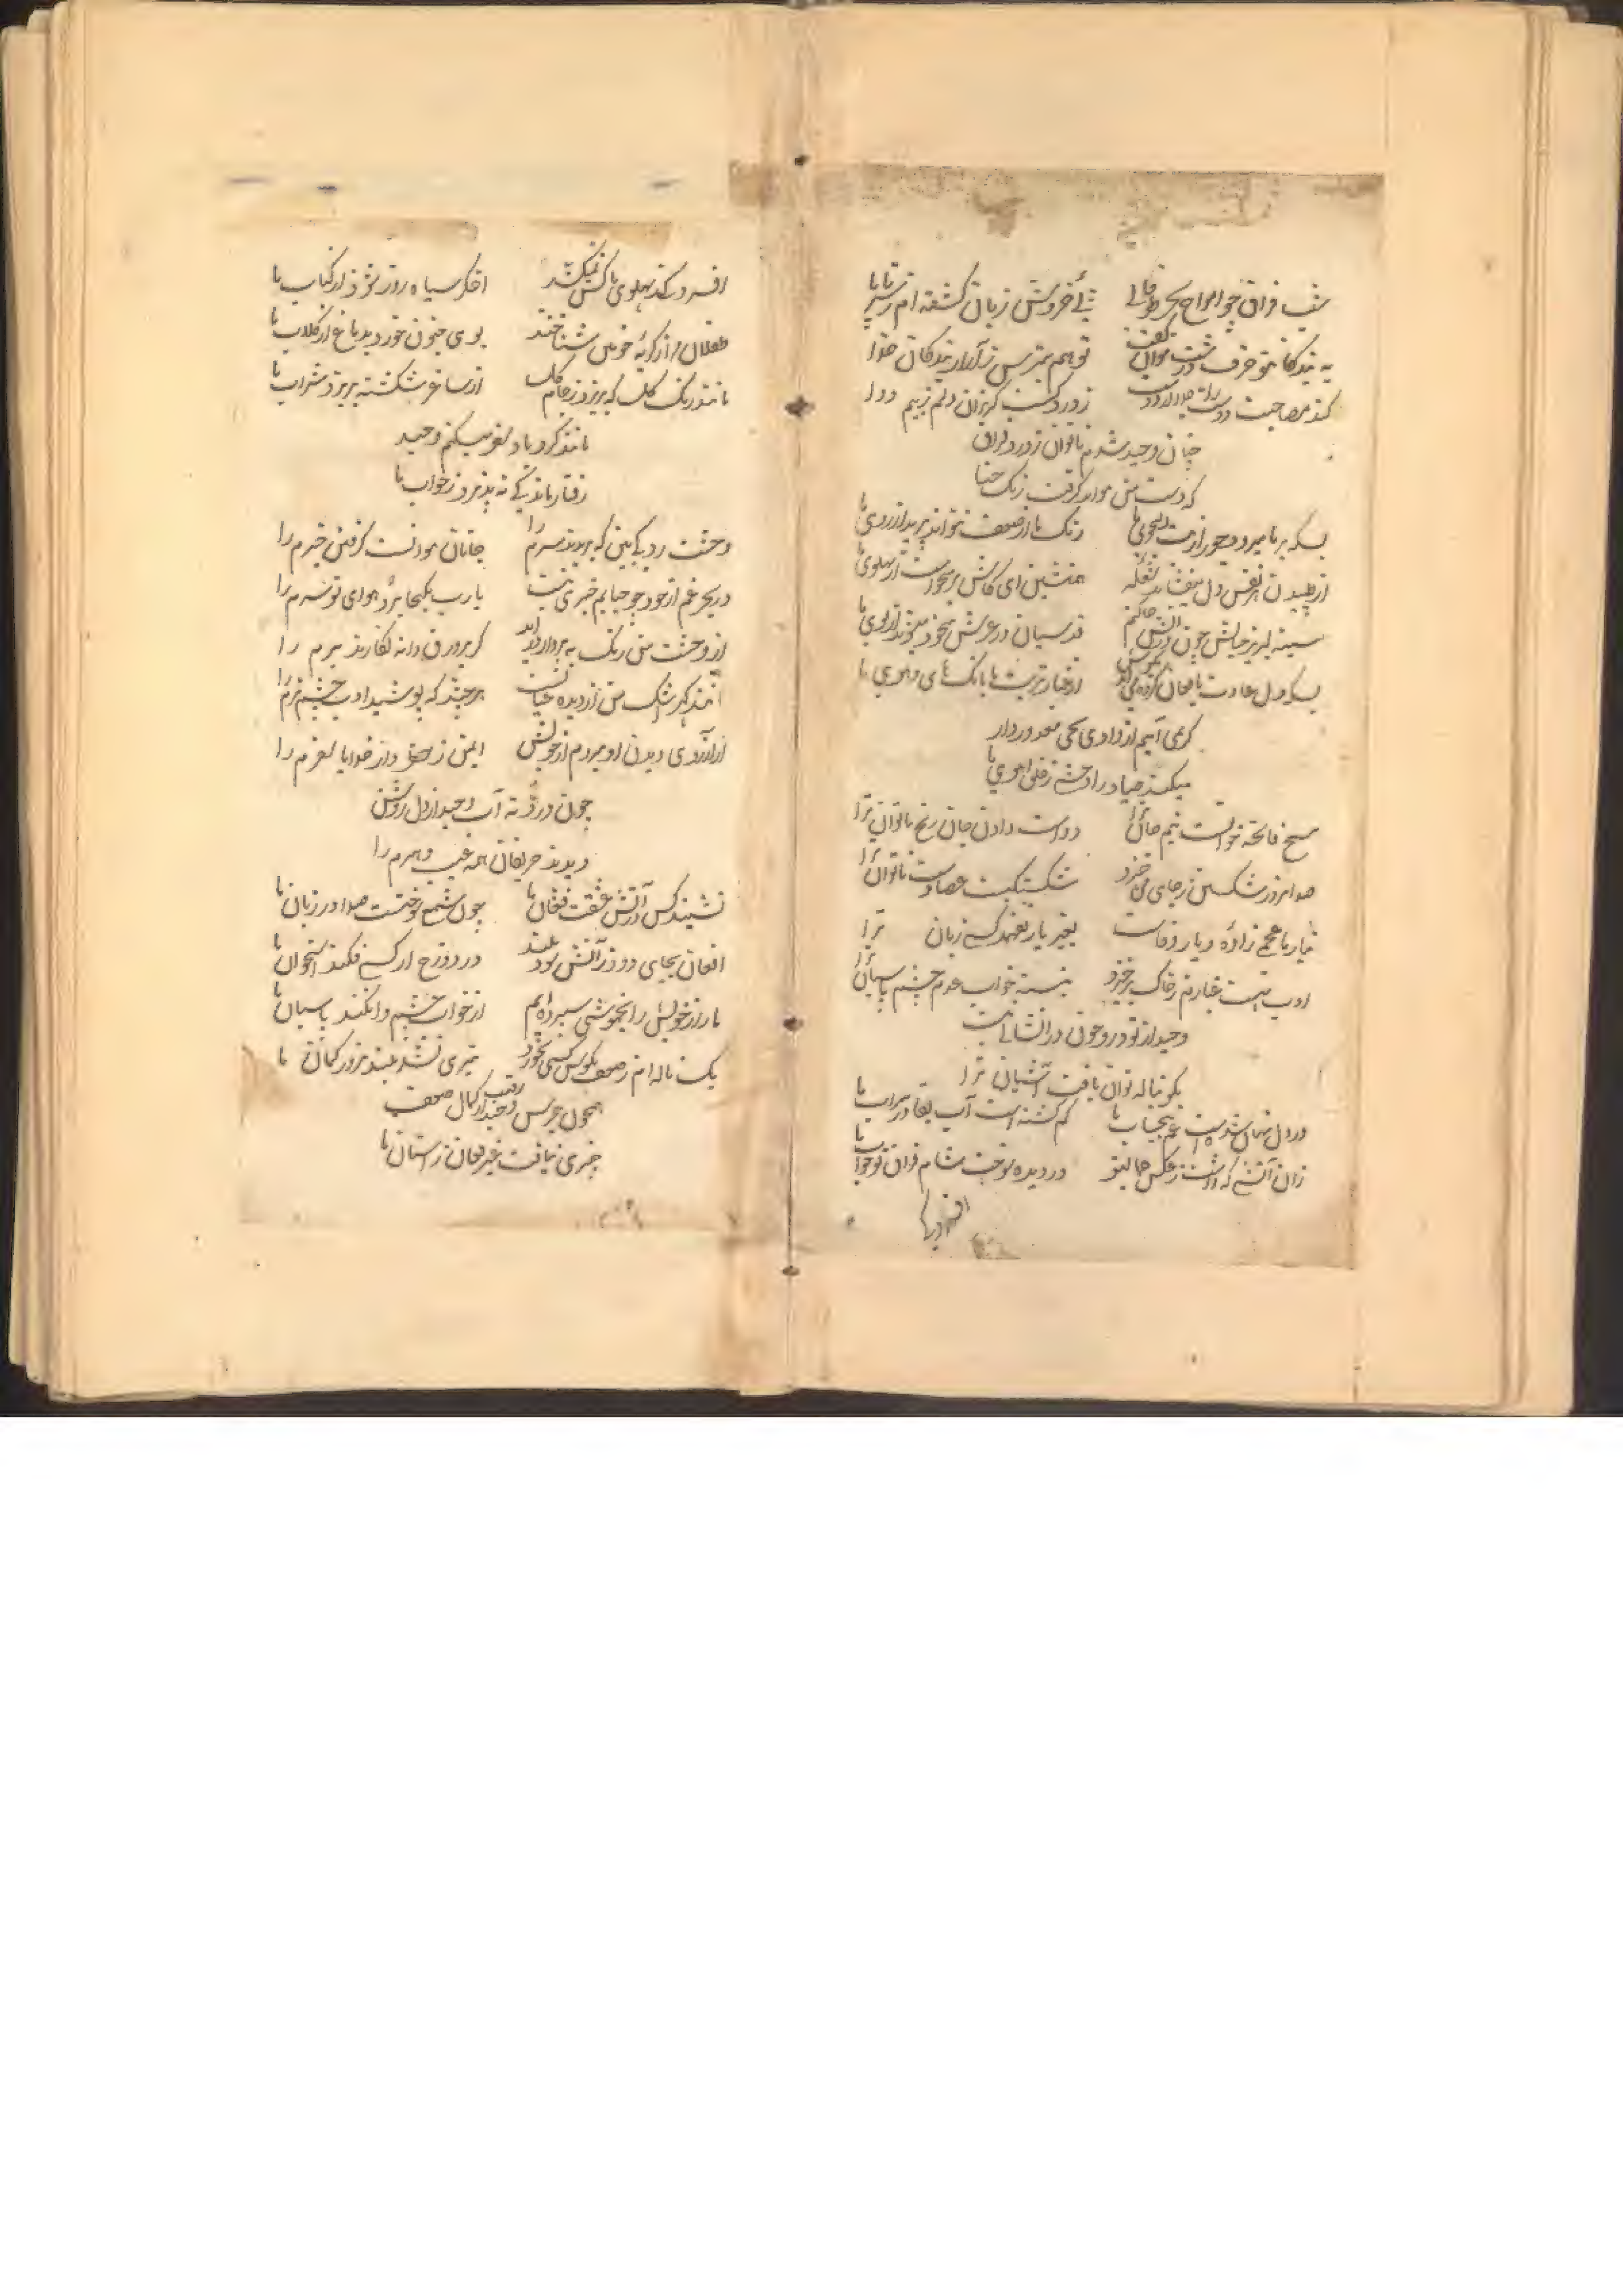 شب فراق چو امواج بحر طوفانی پئی خروش زبان گشته ام ز سر تا پا
به بندگان تو حرف درشت نتوان گفت تو هم بترس ز آزار بندگان خدا
کند مصاحبت دوست را جدا از دوست ز درد گشت گریزان دلم ز بیم دوا
چنان وحید شدم ناتوان ز درد فراق
که دست من نتواند گرفت رنگ حنا
بسکه بر ما میرود جور از بت دلجوی ما رنگ ما از ضعف نتواند پرید از روی ما
از طپیدن هر نفس دل میفشاند شعله همنشین ای کاش برمیخواست از پهلوی ما
سینه لبریز خیالش چون در آتش جا کنیم قدسیان در عرش بیخود میشوند از بوی ما
بسکه دل عادت بافغان کرده از غبار تربت ما بانگ های و هوی ما
گر نمی آییم از وادی نمی معذور دار
میکند صیاد را وحشت ز خلق آهوی ما
مسیح فاتحه خوانست نیم جان ترا دواست دادن جان رنج ناتوان ترا
صدا نزور شکستن ز جای می خیزد شکستگیست عصا دست ناتوان ترا
نیاز ما عجمی زاده و یار بغیر یار نفهمد کسی زبان ترا
ادب نیست غبارم ز خاک برخیزد نبسته خواب عدم چشم پاسبان ترا
وحید از تو درو چون در انشا نیست
بگو بناله توان یافت آشیان ترا
در دل نهان شدست غم بیحساب ما گم گشته است آب بقا در سراب ما
زان آتشی که داشت ز عکس جمال تو در دیده سوخت شام فراق تو خواب ما
افسرده را
افسرده کند پهلوی ما کس نمیکشد اخگر سیاه روز نشود از کباب ما
طفلان را از گریه خونین شناختند بوی جنون خورد بدماغ از گلاب ما
مانند رنگ گل که بریزد ز جام گل از ساغر شکسته بریزد شراب ما
مانند گرد باد سفر میکنم وحید
رفتار ماندگی نپذیرد ز خواب ما
وحشت زدگی بین که بریدند سرم را جانان نتوانست گرفتن خبرم را
در بحر غم از خود چو حبابم خبری نیست یا رب بکجا برد هوای تو سرم را
از وحشت من رنگ به پرواز درآید گر بر ورق دانه نگارند پرم را
مانند گهر اشک من از دیده عیانست هر چند که پوشید ادب چشم ترم را
از آرزوی دیدن او میروم از خویش ایمن ز خطر دار خدایا سفرم را
چون درد ته آب وحید از دل روشن
دیدند حریفان همه عیب و هنرم را
نشنید کس در آتش عشقت فغان ما چون شمع سوختست صدا در زبان ما
افغان بجای دود ز آتش شود بلند در دوزخ ار کسی فکند استخوان ما
ما راز خویش را بخموشی سپرده ایم از خواب چشم وا نکند پاسبان ما
یک ناله ام ز ضعف بگوش کسی نخورد تیری نشد بلند بزور کمان ما
همچون جرس رقیب وحید از کمال ضعف
چیزی نیافت غیر فغان ز استان ما